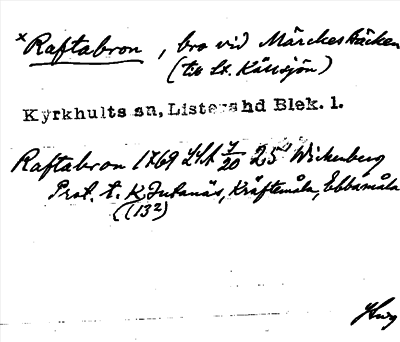 × Raftabron, bro vid Märckesbäcken
(till St. Kållsjön)
Kyrkhults sn, Listers hd Blek. l.
Raftabron 1769 LSA 7/20 25 Wickenberg
Prot. t. K Julanäs, Kräftemåla, Ebbamåla
(132)